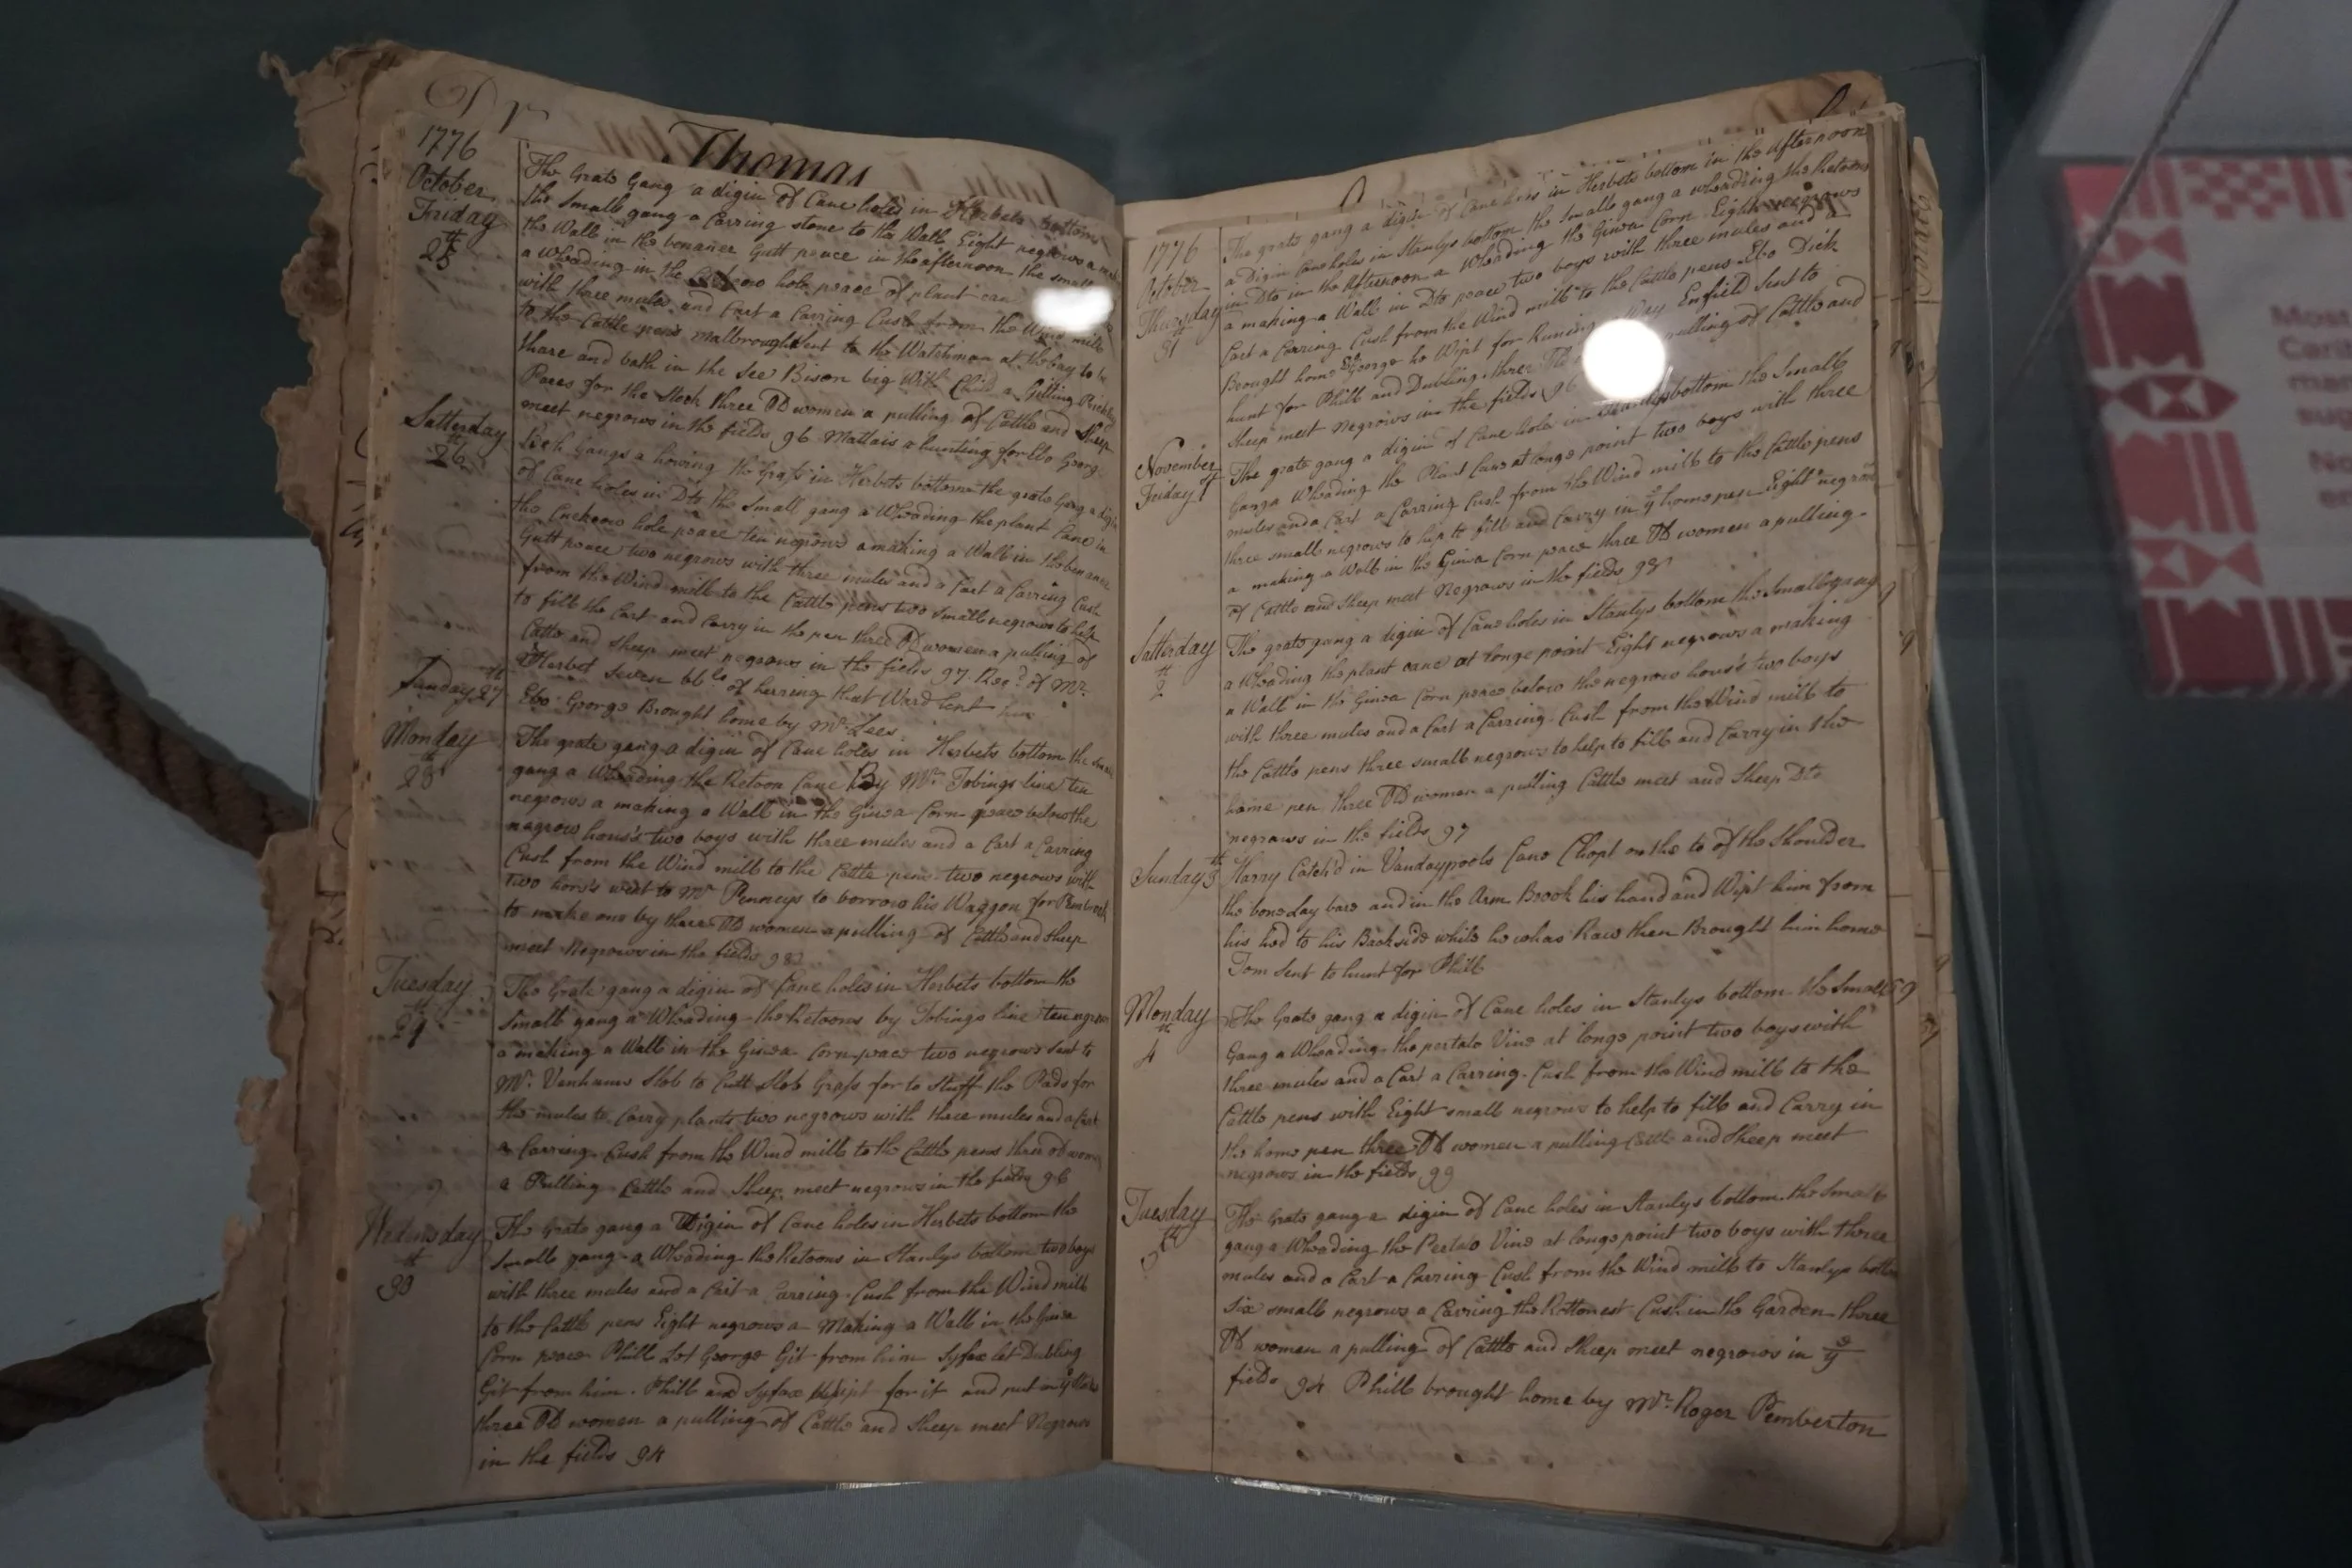 Dr
Thomas
1776
October
Friday
25th
The Grate Gang a digin of Cane holes in Herbets bottom
the Small gang a Carring stone to the Wall Eight negrows a
the Wall in the benaner Gutt peace in the afternoon the small
a Wheading in the hole peace of plant can
with three mules and Cart a Carring Cush from the Wind mill
to the Cattle pens Malbrough Sent to the Watchman at the bay to be
thare and bath in the See Bison big With Child a Gitting Prickly
Pares for the Stock three Old women a pulling of Cattle and Sheep
meet negrows in the fields 96 Mattais a hunting for Ebo Georg
Satterday
26th
Seek Gangs a howing the Grass in Herbets bottom the grate Gang a digin
of Cane holes in Dto the Small gang a Wheading the plant Cane in
the Cuckcow hole peace ten negrows a making a Wall in the benaner
Gutt peace two negrows with three mules and a Cart a Carring Cush
from the Wind mill to the Cattle pens two small negrows to help
to fill the Cart and Carry in the pen three Old women a pulling of
Cattle and Sheep meet negrows in the fields 97 Recd. of Mr.
Herbet Seven bbls of herring that Ward Lent him
Sunday 27th
Ebo George Brought home by Mr Lees
Monday
28th
The grate gang a digin of Cane holes in Herbets bottom the Small
gang a Wheading the Retoon Cane By Mrs Tobings line ten
negrows a making a Wall in the Ginea Corn peace below the
negrow hous's two boys with three mules and a Cart a Carring
Cush from the Wind mill to the Cattle pens two negrows with
two hors's went to Mr Penneys to borrow his Waggon for Pembrook
to make one by three Old women a pulling of Cattle and Sheep
meet Negrows in the fields 98
Tuesday
29th
The Grate gang a digin of Cane holes in Herbets bottom the
Small gang a Wheading the Retoons by Tobings line ten negrows
a making a Wall in the Ginea Corn peace two negrows Sent to
Mr. Venhams Slob to Cutt Slob Grass for to Stuff the Pads for
the mules to Carry plants two negrows with three mules and a Cart
a Carring Cush from the Wind mill to the Cattle pens three old women
a Pulling Cattle and Sheep meet negrows in the fields 96
Wednsday
30th
The Grate gang a Digin of Cane holes in Herbets bottom the
Small gang a Wheading the Retoons in Stanlys bottom two boys
with three mules and a Cart a Carring Cush from the Wind mill
to the Cattle pens Eight negrows a Making a Wall in the Ginea
Corn peace Phill Let George Git from him Syfax let Dubling
Git from him. Phill and Syfax Wipt for it and put in ye Stocks
three Old women a pulling of Cattle and Sheep meet Negrows
in the fields 94
1776
October
Thursday
31st
The grate gang a digin of Cane holes in Herbets bottom in the afternoon
a Digin Cane holes in Stanlys bottom the Small gang a wheading the Retoons
in Dto in the Afternoon a Wheading the Ginea Corn Eight negrows
a making a Wall in Dto peace two boys with three mules and a
Cart a Carring Cush from the Wind mill to the Cattle pens Ebo Dick
Brought home George he Wipt for Runing Way Enfield Sent to
hunt for Phill and Dubling three Old pulling of Cattle and
Sheep meet Negrows in the fields 96
November
Friday 1st
The grate gang a digin of Cane holes in Stanlys bottom the Small
Ganga Wheading the Plant Cane at longe point two boys with three
mules and a Cart a Carring Cush from the Wind mill to the Cattle pens
three small negrows to help to fill and Carry in ye home pen Eight negrows
a making a Wall in the Ginea Corn peace three Old women a pulling
of Cattle and Sheep meet Negrows in the fields 98
Satterday
2th
The grate gang a digin of Cane holes in Stanlys bottom the Small gang
a Wheading the plant cane at longe point Eight negrows a making
a Wall in the Ginea Corn peace below the negrow hous's two boys
with three mules and a Cart a Carring Cush from the Wind mill to
the Cattle pens three small negrows to help to fill and Carry in the
home pen three Old women a pulling Cattle meet and Sheep Dto
negrows in the fields 97
Sunday 3th
Harry Catch'd in Vandaypools Cane Chopt on the to of the Shoulder
the bone lay bare and in the Arm Brook his hand and Wipt him from
his hed to his Backside while he whas Raw then Brought him home
Tom Sent to hunt for Phill
Monday
4th
The Grate gang a digin of Cane holes in Stanlys bottom the Small
Gang a Wheading the pertato Vine at longe point two boys with
three mules and a Cart a Carring Cush from the Wind mill to the
Cattle pens with Eight small negrows to help to fill and Carry in
the home pen three Old women a pulling Cattle and Sheep meet
negrows in the fields 99
Tuesday
5th
The Grate gang a digin of Cane holes in Stanlys bottom the Small
gang a Wheading the Pertato Vine at longe point two boys with three
mules and a Cart a Carring Cush from the Wind mill to Stanlys bottom
Six small negrows a Carring the Rottonest Cush in the Garden three
Old women a pulling of Cattle and Sheep meet negrows in ye
fields 94 Phill brought home by Mr. Roger Pemberton
Most